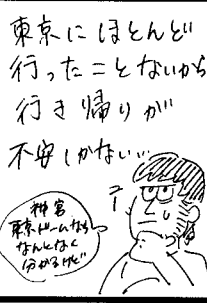 東京にほとんど
行ったことないから
行き帰りが
不安しかない…
神宮
東京ドームなら
なんとなく
分かるけど